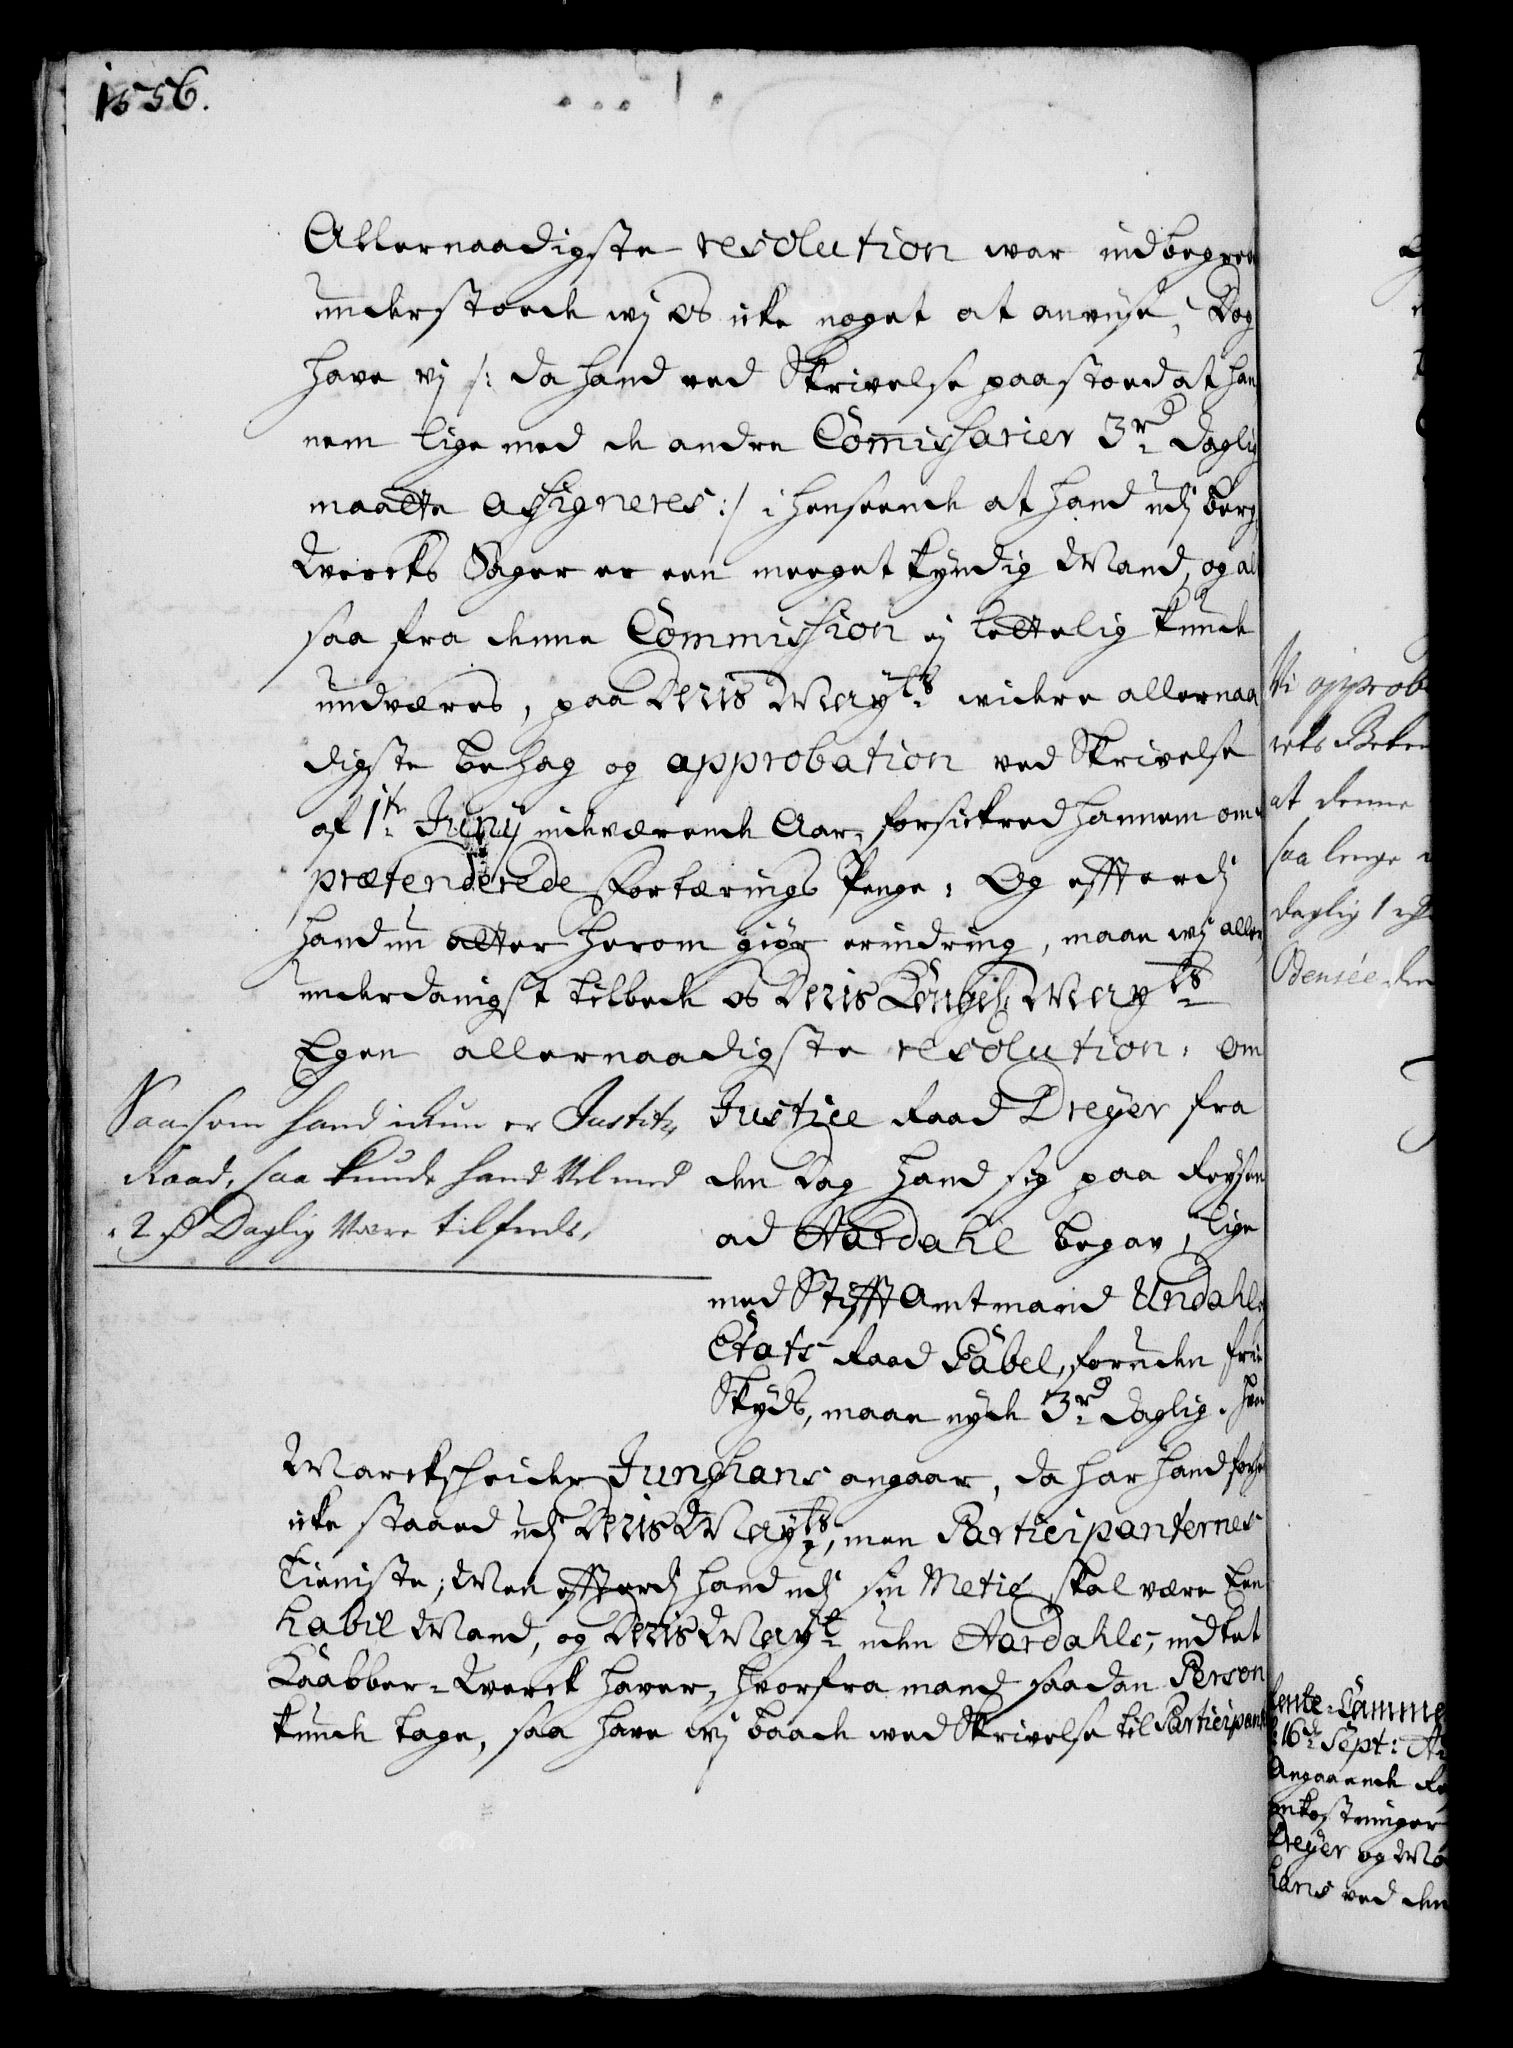 1556.
Allernaadigste resolution war indbegreb
understoede wj os icke noget at anvise, Dog
have vj /: da hand ved Skrivelse paastoed at han
nem lige med de andre Commissarier 3 rd daglig
maatte assigneres :/ i henseende at hand udj berg
Wercks Sager er een meeget kyndig Mand, og al
saa fra denne Commission ej lettelig kunde
undværes, paa Deris Mayts widere allernaa
digste behag og approbation ved Skrivelse
af 1te Junÿ indeværende Aar, forsickred hannem om
prætenderede Fortærings Penge: Og efftterdj
hand nu atter herom giør erindring, maae wj aller
underdanigst tilbede os Deris Kongel. Mayts
Egen allernaadigste resolution, om
Justice Raad Dreÿer fra
den Dag hand sig paa Reysen
ad Aardahl begav, lige
med Stifft Amtmand Undahl
Etats Raad Gabel, foruden frie
Skyds, maae nyde 3 rd daglig. hvad
Saasom hand ickun er Justitz
Raad, saa kunde hand Vel med
2 rd Daglig Være tilfreds,
Marckscheider Junghans angaar, da har hand
icke staaed udj Deris Mayts, men Participanternes
Tieniste; Men effterdj hand udj sin Metie skal være Een
habil Mand, og Deris Mayt uden Aardahls, indtet
Kaabber-Werck haver, hvorfra mand saadan Person
kunde tage, saa have wj baade ved Skrivelse til Participant
Vi approb
at denne
saa lenge
daglig 1 rd
Odensée den
Rente-Camme
16d Sept:
Angaaende
omkostninger
Dreÿer og Ma
hans ved den